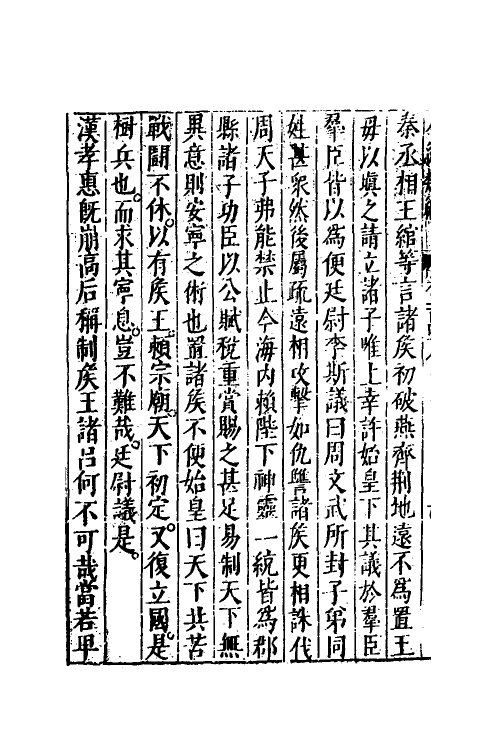 秦丞相王綰等言諸矦初破燕齊荆地遠不爲置王
毋以塡之請立諸子唯上幸許始皇下其議於羣臣
羣臣皆以爲便廷尉李斯議曰周文武所封子弟同
姓甚衆然後屬疏遠相攻擊如仇讐諸矦更相誅伐
周天子弗能禁止今海內賴陛下神靈一統皆爲郡
縣諸子功臣以公賦稅重賞賜之甚足易制天下無
異意則安寧之術也置諸矦不便始皇曰天下共苦
戰鬭不休。以有矦王。賴宗廟。天下初定。又復立國。是
樹兵也。而求其寧息。豈不難哉。廷尉議是。
漢孝惠旣崩高后稱制矦王諸呂何不可哉當若平